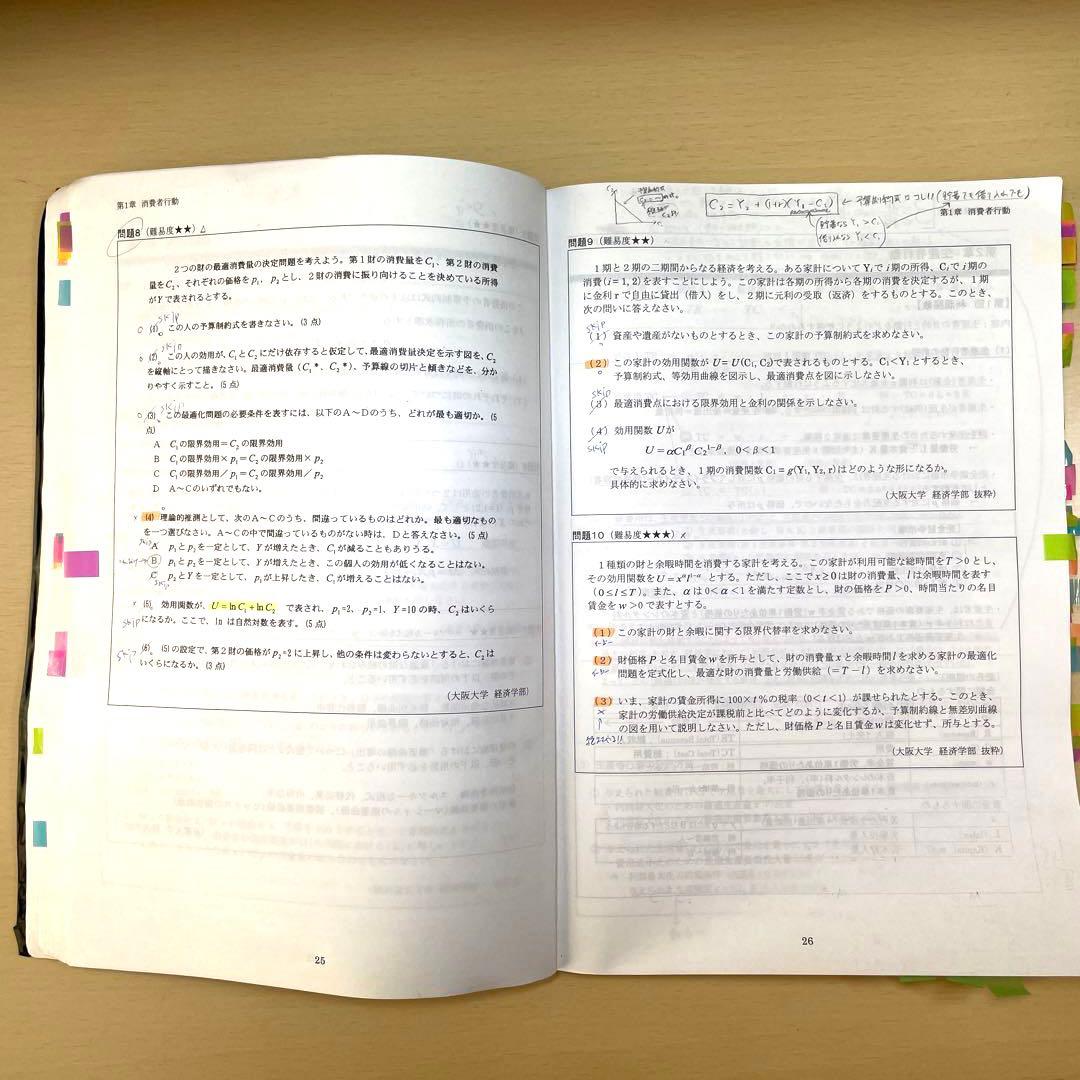 第1章 消費者行動
問題8(難易度★★)△
2つの財の最適消費量の決定問題を考えよう。第1財の消費量をC₁、第2財の消費
量をC₂、それぞれの価格をp₁, p₂とし、2財の消費に振り向けることを決めている所得
がYで表されるとする。
skip
(1) この人の予算制約式を書きなさい。(3点)
skip
(2) この人の効用が、C₁とC₂にだけ依存すると仮定して、最適消費量決定を示す図を、C₂
を縦軸にとって描きなさい。最適消費量(C₁*、C₂*)、予算線の切片と傾きなどを、分か
りやすく示すこと。(5点)
skip
(3) この最適化問題の必要条件を表すには、以下のA~Dのうち、どれが最も適切か。(5
点)
A C₁の限界効用=C₂の限界効用
B C₁の限界効用×p₁=C₂の限界効用×p₂
C C₁の限界効用/p₁=C₂の限界効用/p₂
D A~Cのいずれでもない。
(4) 理論的推測として、次のA~Cのうち、間違っているものはどれか。最も適切なもの
を一つ選びなさい。A~Cの中で間違っているものがない時は、Dと答えなさい。(5点)
A p₁とp₂を一定として、Yが増えたとき、C₁が減ることもありうる。
B p₁とp₂を一定として、Yが増えたとき、この個人の効用が低くなることはない。
C p₂とYを一定として、p₁が上昇したき、C₁が増えることはない。
skip
(5) 効用関数が、U=lnC₁+lnC₂ で表され、p₁=2、p₂=1、Y=10の時、C₂はいくら
skip になるか。ここで、lnは自然対数を表す。(5点)
skip (6) (5)の設定で、第2財の価格がp₂=2に上昇し、他の条件は変わらないとすると、C₂は
いくらになるか。(3点)
(大阪大学 経済学部)
25
C₂=Y₂+(1+r)(Y₁-C₁)
第1章 消費者行動
問題9(難易度★★)
1期と2期の二期間からなる経済を考える。ある家計についてYᵢでi期の所得、Cᵢでi期の
消費(i=1,2)を表すことにしよう。この家計は各期の所得から各期の消費を決定するが、1期
に金利rで自由に貸出(借入)をし、2期に元利の受取(返済)をするものとする。このとき、
次の問いに答えなさい。
skip
(1) 資産や遺産がないものとするとき、この家計の予算制約式を求めなさい。
(2) この家計の効用関数がU=U(C₁,C₂)で表されるものとする。C₁<Y₁とするとき、
予算制約式、等効用曲線を図示し、最適消費点を図に示しなさい。
skip
(3) 最適消費点における限界効用と金利の関係を示しなさい。
(4) 効用関数Uが
skip
U=αC₁^βC₂^1-β, 0<β<1
で与えられるとき、1期の消費関数C₁=g(Y₁,Y₂,r)はどのような形になるか。
具体的に求めなさい。
(大阪大学 経済学部 抜粋)
問題10(難易度★★★)×
1種類の財と余暇時間を消費する家計を考える。この家計が利用可能な総時間をT>0とし、
その効用関数をU=x^αl^1-αとする。ただし、ここでx≥0は財の消費量、lは余暇時間を表す
(0≤l≤T)。また、αは0<α<1を満たす定数とし、財の価格をP>0、時間当たりの名目
賃金をw>0で表すとする。
(1) この家計の財と余暇に関する限界代替率を求めなさい。
(2) 財価格Pと名目賃金wを所与として、財の消費量xと余暇時間lを求める家計の最適化
問題を定式化し、最適な財の消費量と労働供給(=T-l)を求めなさい。
(3) いま、家計の賃金所得に100×t%の税率(0<t<1)が課せられたとする。このとき、
家計の労働供給決定が課税前と比べてどのように変化するか、予算制約線と無差別曲線
の図を用いて説明しなさい。ただし、財価格Pと名目賃金wは変化せず、所与とする。
(大阪大学 経済学部 抜粋)
26